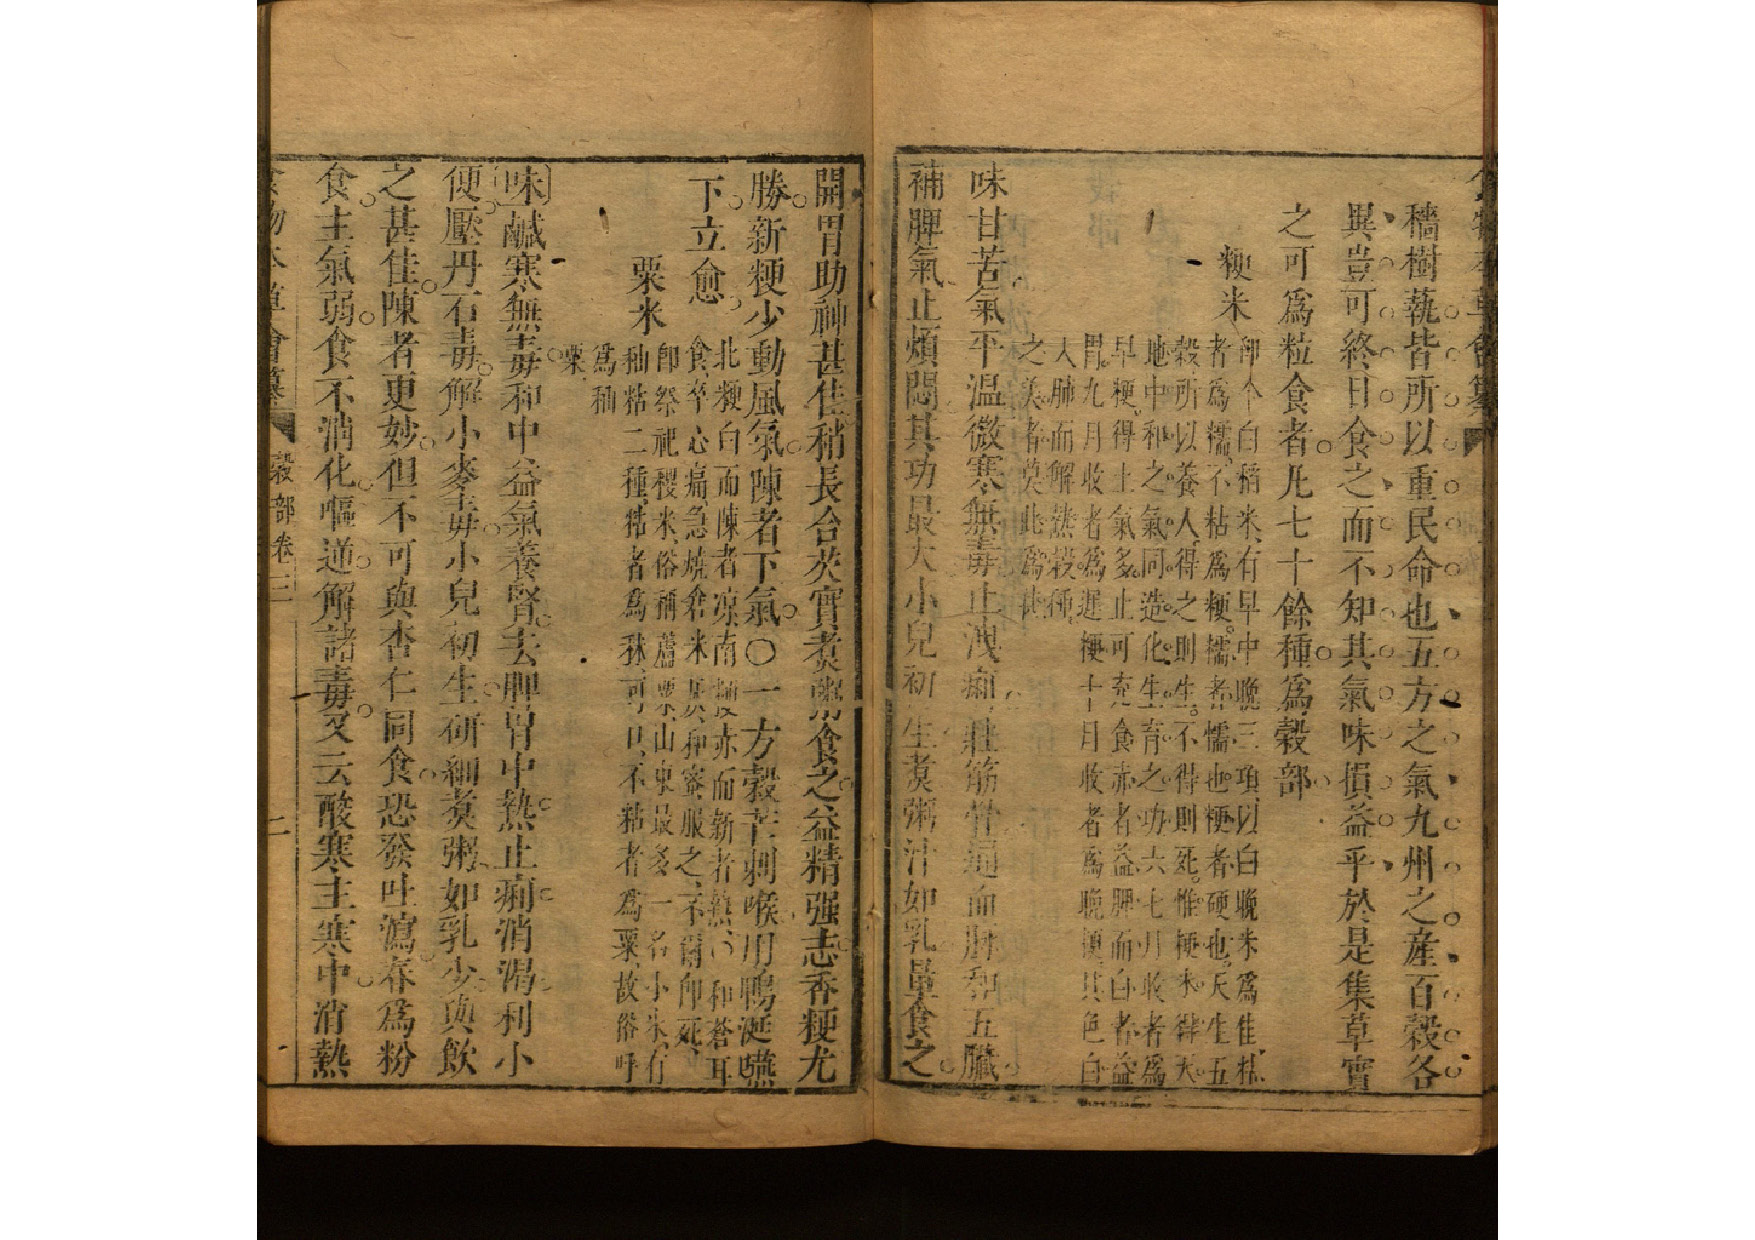 食物本草會纂
穡樹蓺皆所以重民命也五方之氣九州之產百穀各
異豈可終日食之而不知其氣味損益乎於是集草實
之可爲粒食者凡七十餘種爲穀部
粳米
卽今白稻米有早中晚三項以白晚米爲佳粘
者爲糯不粘爲粳糯者懦也粳者硬也天生五
穀所以養人得之則生不得則死惟粳米得天
地中和之氣同造化生育之功六七月收者爲
早粳得土氣多止可充食赤者益脾而白者益
胃九月收者爲遲粳十月收者爲晚粳其色白
入肺而解熱穀種
之美者莫此爲甚
味甘苦氣平温微寒無毒止洩痢壯筋骨通血脉和五臟
補脾氣止煩悶其功最大小兒初生煮粥汁如乳量食之
開胃助神甚佳稍長合芡實煮粥食之益精强志香粳尤
勝新粳少動風氣陳者下氣〇一方穀芒刺喉用鴨涎嚥
下立愈
北粳白而陳者凉南粳赤而新者熱〇和蒼耳
食卒心痛急燒倉米灰和蜜服之不爾卽死
粟米
卽祭祀稷米俗稱蘆粟山東最多一名小米有
秈粘二種粘者爲秫可以不粘者爲粟故俗呼
爲秈
粟
味鹹寒無毒和中益氣養腎去脾胃中熱止痢消渴利小
便壓丹石毒解小麥毒小兒初生研細煮粥如乳少與飲
之甚佳陳者更妙但不可與杏仁同食恐發吐瀉舂爲粉
食主氣弱食不消化嘔逆解諸毒又云酸寒主寒中消熱
食物本草會纂 穀部卷三 二